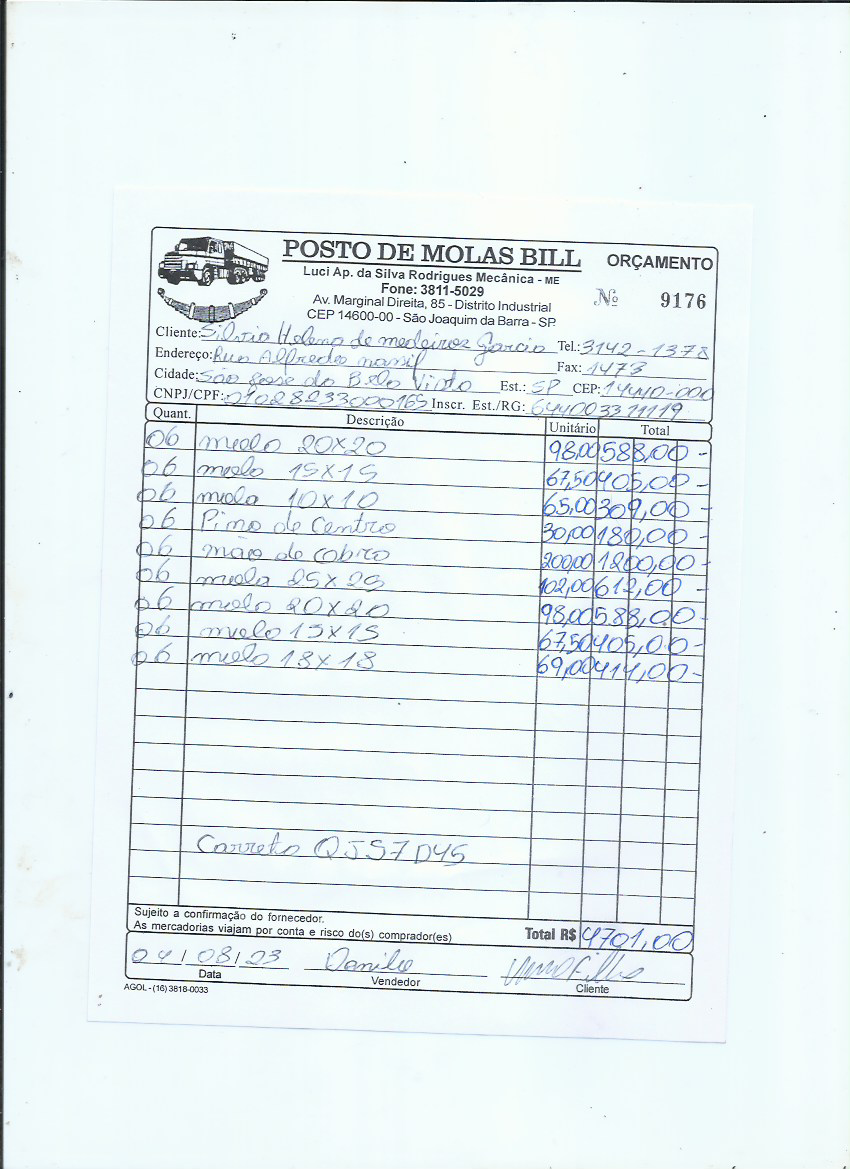 POSTO DE MOLAS BILL ORÇAMENTO
Luci Ap. da Silva Rodrigues Mecânica - ME
Fone: 3811-5029
Av. Marginal Direita, 85 - Distrito Industrial
CEP 14600-00 - São Joaquim da Barra - SP
Nº 9176
Cliente: Silvia Helena de medeiros Garcia Tel.: 3142-1378
Endereço: Rua Alfredo nassif Fax: 1473
Cidade: São Jose da Bela Vista Est.: SP CEP: 14440-000
CNPJ/CPF: 01028233000165 Inscr. Est./RG:
Quant. Descrição Unitário Total
06 mola 20x20 98,00 588,00 -
06 mola 15x15 67,50 405,00 -
06 mola 10x10 65,00 309,00 -
06 Pino de Centro 30,00 180,00 -
06 mão de cobra 200,00 1200,00 -
06 mola 25x25 102,00 612,00 -
06 mola 20x20 98,00 588,00 -
06 mola 15x15 67,50 405,00 -
06 mola 18x18 69,00 414,00 -
Carreta QJS7D45
Sujeito a confirmação do fornecedor.
As mercadorias viajam por conta e risco do(s) comprador(es) Total R$ 4701,00
04/08/23 Danilo
Data Vendedor Cliente
AGOL - (16) 3818-0033